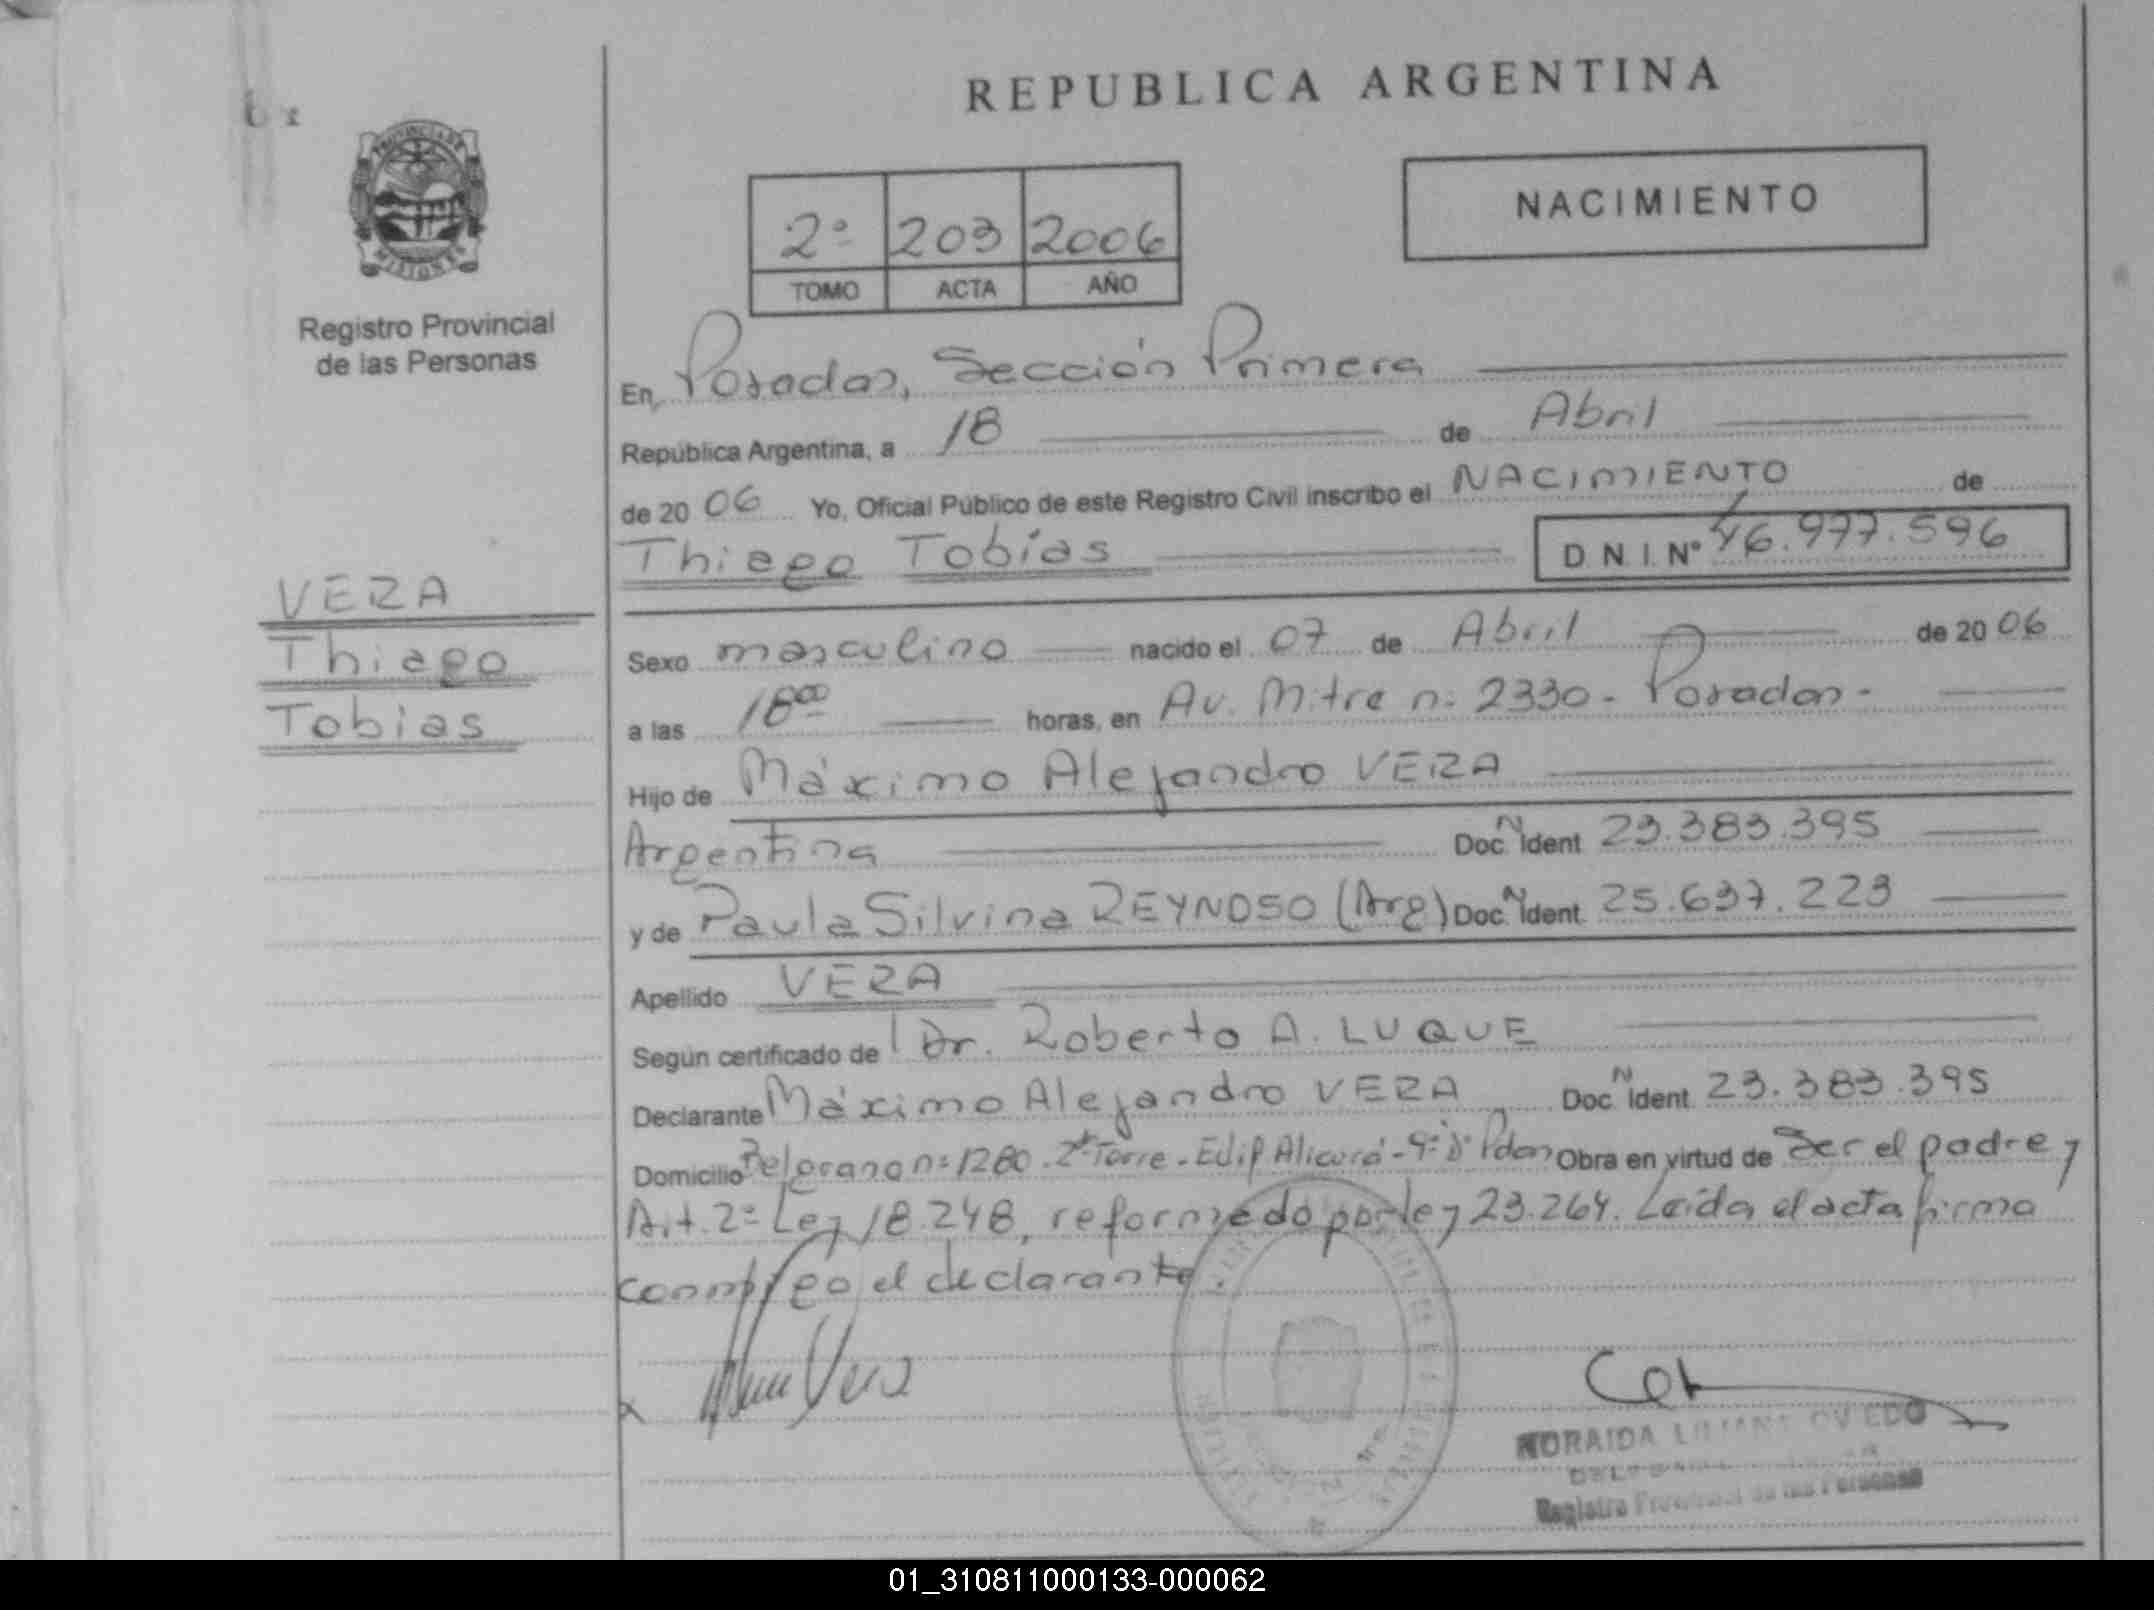 REPUBLICA ARGENTINA
PROVINCIA DE
MISIONES
Registro Provincial
de las Personas
2º 203 2006
TOMO ACTA AÑO
NACIMIENTO
En Posadas, Sección Primera
República Argentina, a 18 de Abril
de 2006 Yo, Oficial Público de este Registro Civil inscribo el NACIMIENTO de
Thiago Tobías D.N.I. Nº 46.977.596
VERA
Thiago
Tobias
Sexo masculino nacido el 07 de Abril de 2006
a las 18⁰⁰ horas, en Av. Mitre nº 2330 - Posadas -
Hijo de Máximo Alejandro VERA
Argentina Doc. N Ident. 23.383.395
y de Paula Silvina REYNOSO (Arg) Doc. N Ident. 25.637.223
Apellido VERA
Según certificado de Dr. Roberto A. LUQUE
Declarante Máximo Alejandro VERA Doc. N Ident. 23.383.395
Domicilio Belgrano nº 1280 - 2ª Torre - Edif Alicurá - 9º Pdas Obra en virtud de Ser el padre y
Art. 2º Ley 18.248, reformado por ley 23.264. Leída el acta firma
conmigo el declarante.
NORAIDA LILIANA OVIEDO
Registro Provincial de las Personas
01_310811000133-000062